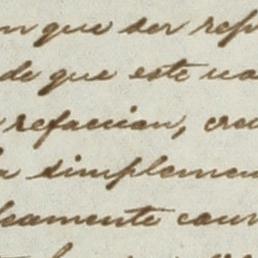 n que ser rep
de que este va
refaccion, cre
a simplemen
camente caur